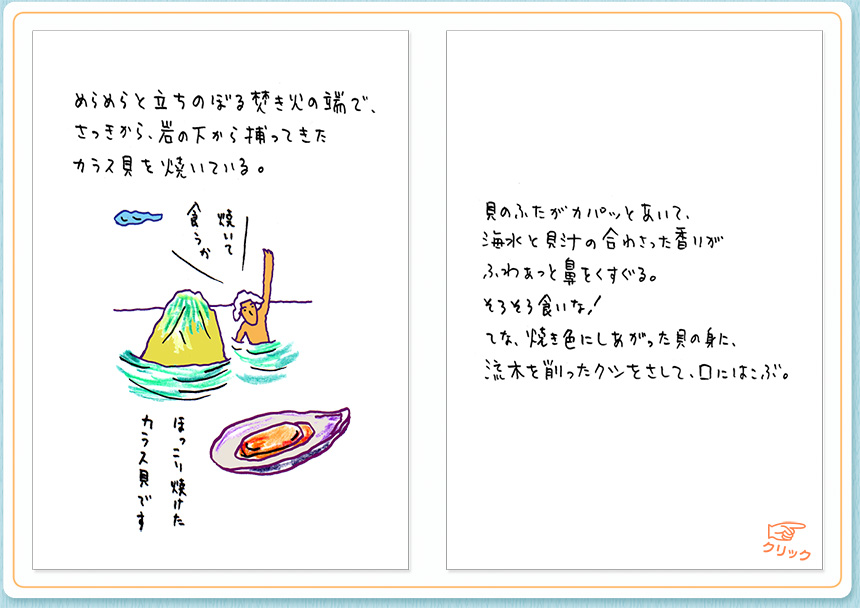 めらめらと立ちのぼる焚き火の端で、
さっきから、岩の下から捕ってきた
カラス貝を焼いている。
焼いて
食うか
ほっこり焼けた
カラス貝です
貝のふたがカパッとあいて、
海水と貝汁の合わさった香りが
ふわぁっと鼻をくすぐる。
そろそろ食いな!
てな、焼き色にしあがった貝の身に、
流木を削ったクシをさして、口にはこぶ。
クリック